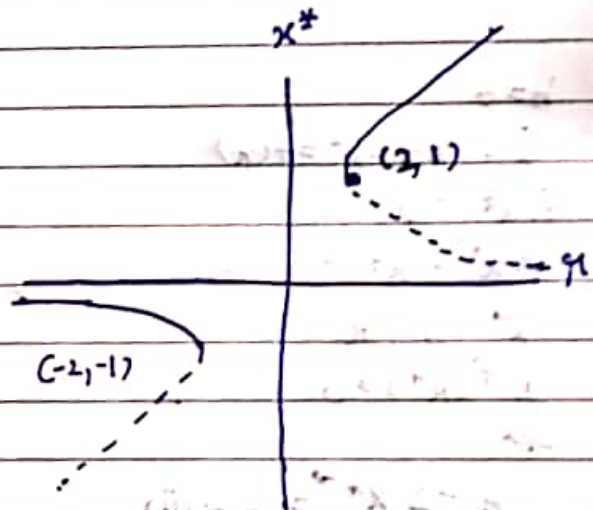 x*
(2, 1)
r
(-2, -1)